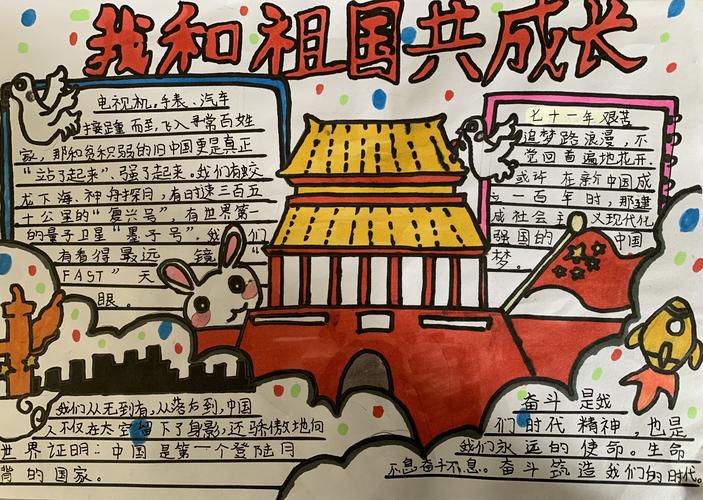 我和祖国共成长
电视机、手表、汽车
接踵而至,飞入寻常百姓
家,那和贫积弱的旧中国更是真正
“站了起来”、强了起来。我们有蛟
龙下海、神舟探月,有时速三百五
十公里的“复兴号”,有世界第一
的量子卫星“墨子号”,我们
有看得最远 镜“
FAST”天
眼。
七十一年 艰苦
追梦路浪漫,不
觉回首遍地花开.
或许在新中国成
立一百年时,那建
成社会主义现代化
强国的 中国
梦。
我们从无到有,从落后到,中国
人不仅在太空留下了身影,还骄傲地向
世界证明:中国是第一个登陆月
背的国家。
奋斗是我
们时代精神,也是
我们永远的使命。生命
不息奋斗不息。奋斗筑造我们的时代。